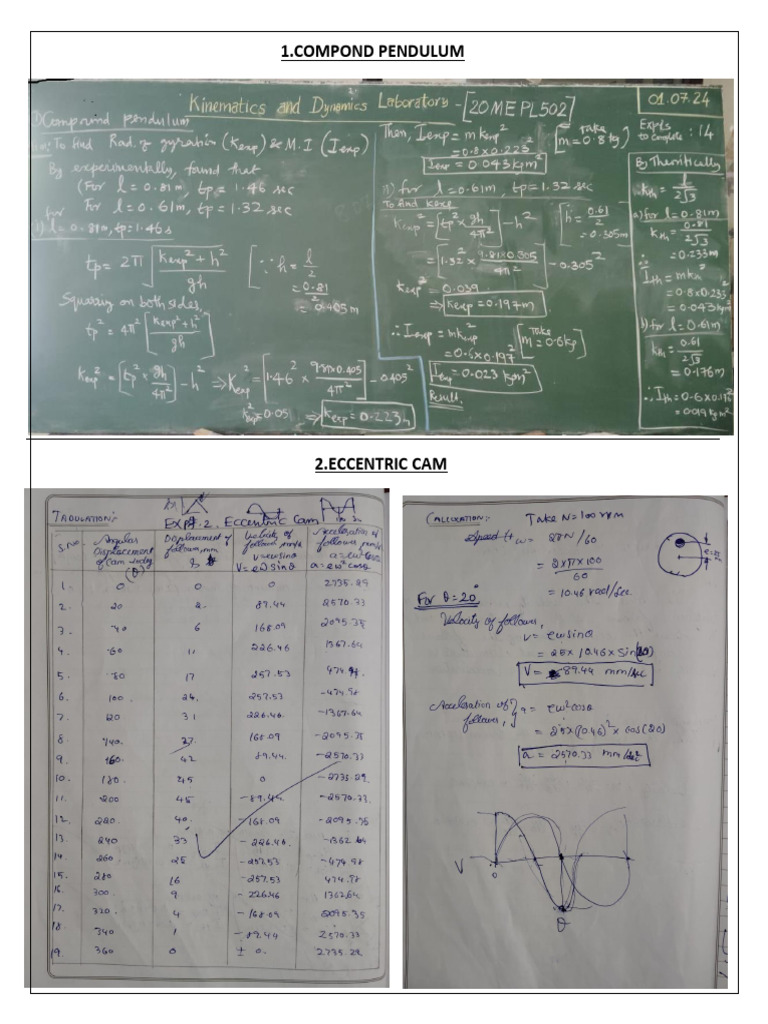 1.COMPOND PENDULUM
Kinematics and Dynamics Laboratory - [20MEPL502]
01.07.24
1) Compound pendulum
Aim: To find Rad. of gyration (Kexp) & M.I (Iexp)
By experimentally, found that
(For l = 0.81m, tp = 1.46 sec
For l = 0.61m, tp = 1.32 sec
i) l = 0.81m, tp = 1.46s
tp = 2π √(Kexp² + h² / gh)
[∵ h = l/2
= 0.81/2
= 0.405m
Squaring on both sides,
tp² = 4π² [Kexp² + h² / gh]
Kexp² = [tp² × gh / 4π²] - h²
⇒ Kexp² = [1.46² × 9.81×0.405 / 4π²] - 0.405²
K²exp = 0.05 ⇒ Kexp = 0.223
Then, Iexp = m Kexp²
= 0.8 × 0.223²
[Take m = 0.8 kg]
Iexp = 0.043 kgm²
ii) for l = 0.61m, tp = 1.32 sec
To find Kexp
Kexp² = [tp² × gh / 4π²] - h²
[h = 0.61/2
= 0.305m
= [1.32² × 9.81×0.305 / 4π²] - 0.305²
Kexp² = 0.039
⇒ Kexp = 0.197m
∴ Iexp = m Kexp²
[Take m = 0.6kg]
= 0.6 × 0.197²
Iexp = 0.023 kgm²
Result.
Expts to complete : 14
By Theoritically
Kth = l / 2√3
a) for l = 0.81m
Kth = 0.81 / 2√3
= 0.233m
∴ Ith = m Kth²
= 0.8 × 0.233²
= 0.043 kgm²
b) for l = 0.61m
Kth = 0.61 / 2√3
= 0.176m
∴ Ith = 0.6 × 0.176²
= 0.019 kgm²
2.ECCENTRIC CAM
TABULATION:
Expt. 2. Eccentric Cam
S.No. Angular Displacement of Cam (θ) Displacement of follower, mm Velocity of follower V = eω sinθ Acceleration of follower a = eω² cosθ
1. 0 0 0 2735.29
2. 20 2 89.44 2570.33
3. 40 6 168.09 2095.35
4. 60 11 226.46 1367.64
5. 80 17 257.53 474.98
6. 100 24 257.53 -474.98
7. 120 31 226.46 -1367.64
8. 140 37 168.09 -2095.35
9. 160 42 89.44 -2570.33
10. 180 45 0 -2735.29
11. 200 45 -89.44 -2570.33
12. 220 40 -168.09 -2095.35
13. 240 33 -226.46 -1362.64
14. 260 25 -257.53 -474.98
15. 280 16 -257.53 474.98
16. 300 9 -226.46 1362.64
17. 320 4 -168.09 2095.35
18 340 1 -89.44 2570.33
19. 360 0 ± 0. 2735.29
CALCULATION:
Take N = 100 rpm
Speed ω = 2πN / 60
= 2×π×100 / 60
= 10.46 rad/sec
For θ = 20°
Velocity of follower,
v = eω sinθ
= 25 × 10.46 × sin(20)
V = 89.44 mm/sec
Acceleration of follower, } a = eω² cosθ
= 25 × (10.46)² × cos(20)
a = 2570.33 mm/s²
V
0
θ